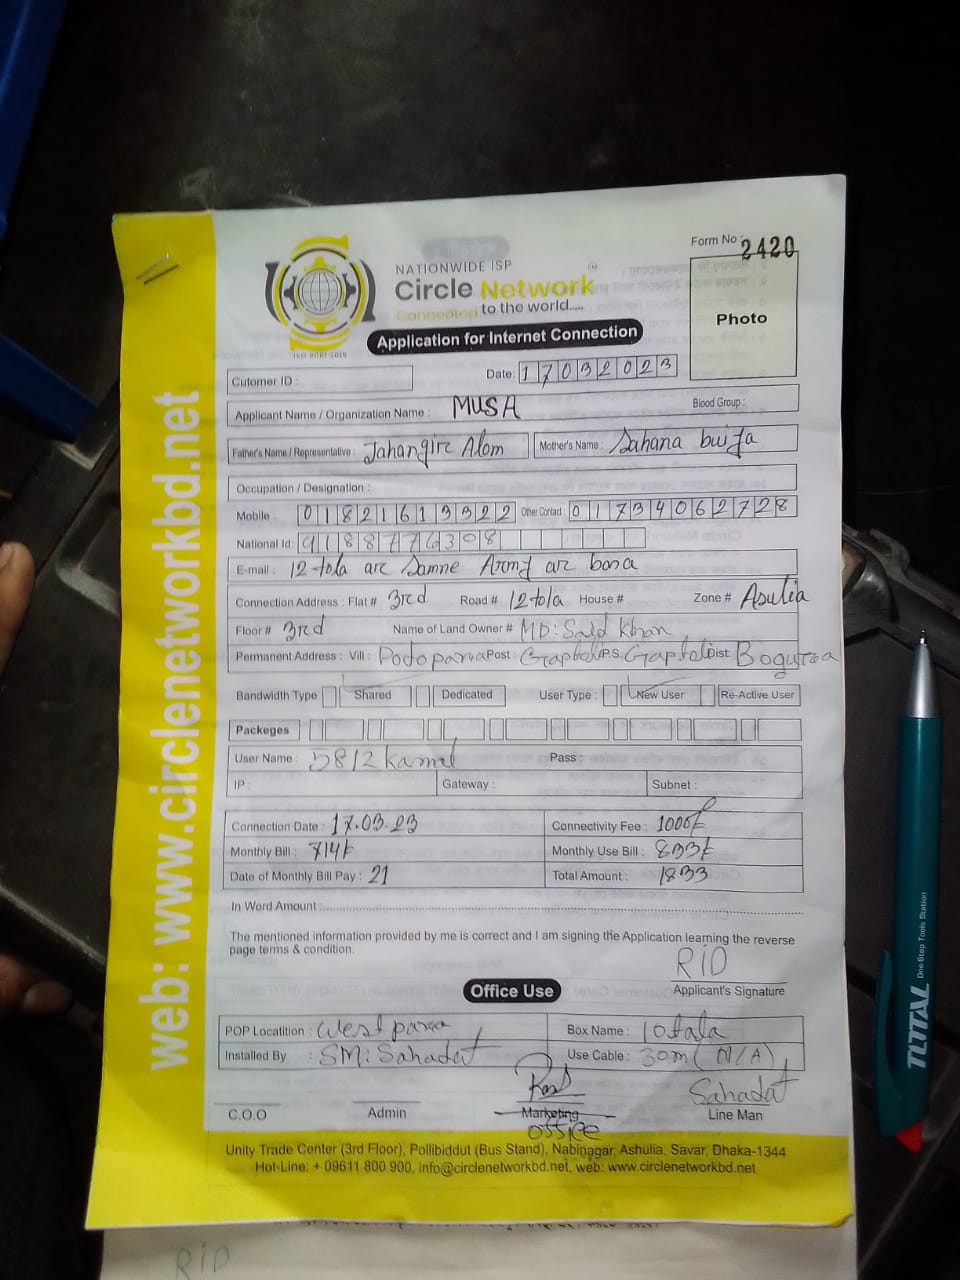 Form No : 2420
NATIONWIDE ISP
Circle Network
Connected to the world.....
ISO 9001:2015
Photo
Application for Internet Connection
Cutomer ID :
Date: 17032023
Applicant Name / Organization Name : MUSA Blood Group :
Father's Name / Representative : Jahangir Alom Mother's Name : Sahana
Occupation / Designation :
Mobile : 01821613322 Other Contact : 01734062728
National Id: 9188776308
E-mail : 12 tola ar Samne Army ar basa
Connection Address : Flat # 3rd Road # 12 tola House # Zone # Asulia
Floor # 3rd Name of Land Owner # MD: Said Khan
Permanent Address : Vill : Podo parra Post : Gaptoli P.S. Gaptoli Dist: Bogura
Bandwidth Type Shared Dedicated User Type : New User Re-Active User
Packeges
User Name : 5812 kamal Pass :
IP : Gateway : Subnet :
Connection Date : 17.03.23 Connectivity Fee : 1000/
Monthly Bill : 714/ Monthly Use Bill : 833/
Date of Monthly Bill Pay : 21 Total Amount : 1833
In Word Amount :
The mentioned information provided by me is correct and I am signing the Application learning the reverse
page terms & condition.
RID
Applicant's Signature
Office Use
POP Locatition : West parra Box Name : 10 tala
Installed By : SM: Sahadat Use Cable : 30m (N/A)
Sahadat
C.O.O Admin Marketing Line Man
office
Unity Trade Center (3rd Floor), Pollibiddut (Bus Stand), Nabinagar, Ashulia, Savar, Dhaka-1344
Hot-Line: + 09611 800 900, info@circlenetworkbd.net, web: www.circlenetworkbd.net
web: www.circlenetworkbd.net
RID
TOTAL One Stop Tools Station